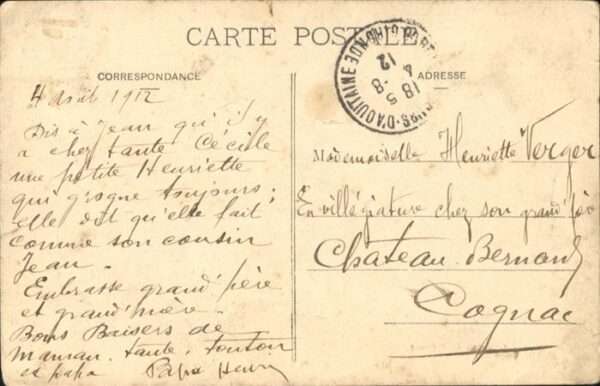 CARTE POSTALE
CORRESPONDANCE
4 Août 1912
Dis à Jean qu'il y
a chez tante Cécile
une petite Henriette
qui grogne toujours;
elle dit qu'elle fait
comme son cousin
Jean.
Embrasse grand'père
et grand'mère.
Bons Baisers de
maman. tante, tonton
et papa Papa Henri
ADRESSE
Mademoiselle Henriette Verger
En villégiature chez son grand père
Chateau-Bernard
Cognac
D'AQUITAINE
GIRONDE
18 5
4 - 8
12